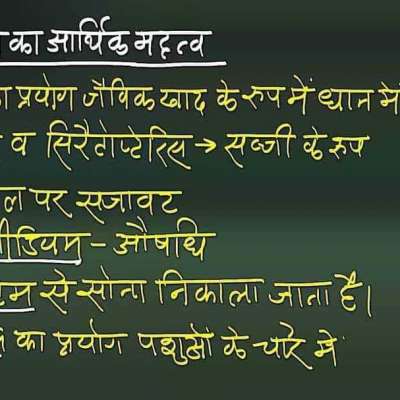 का आर्थिक महत्व
प्रयोग जैविक खाद के रूप में धान में
व सिरैटोप्टेरिस → सब्जी के रूप
पर सजावट
– औषधि
से सोना निकाला जाता है।
का प्रयोग पशुओं के चारे में